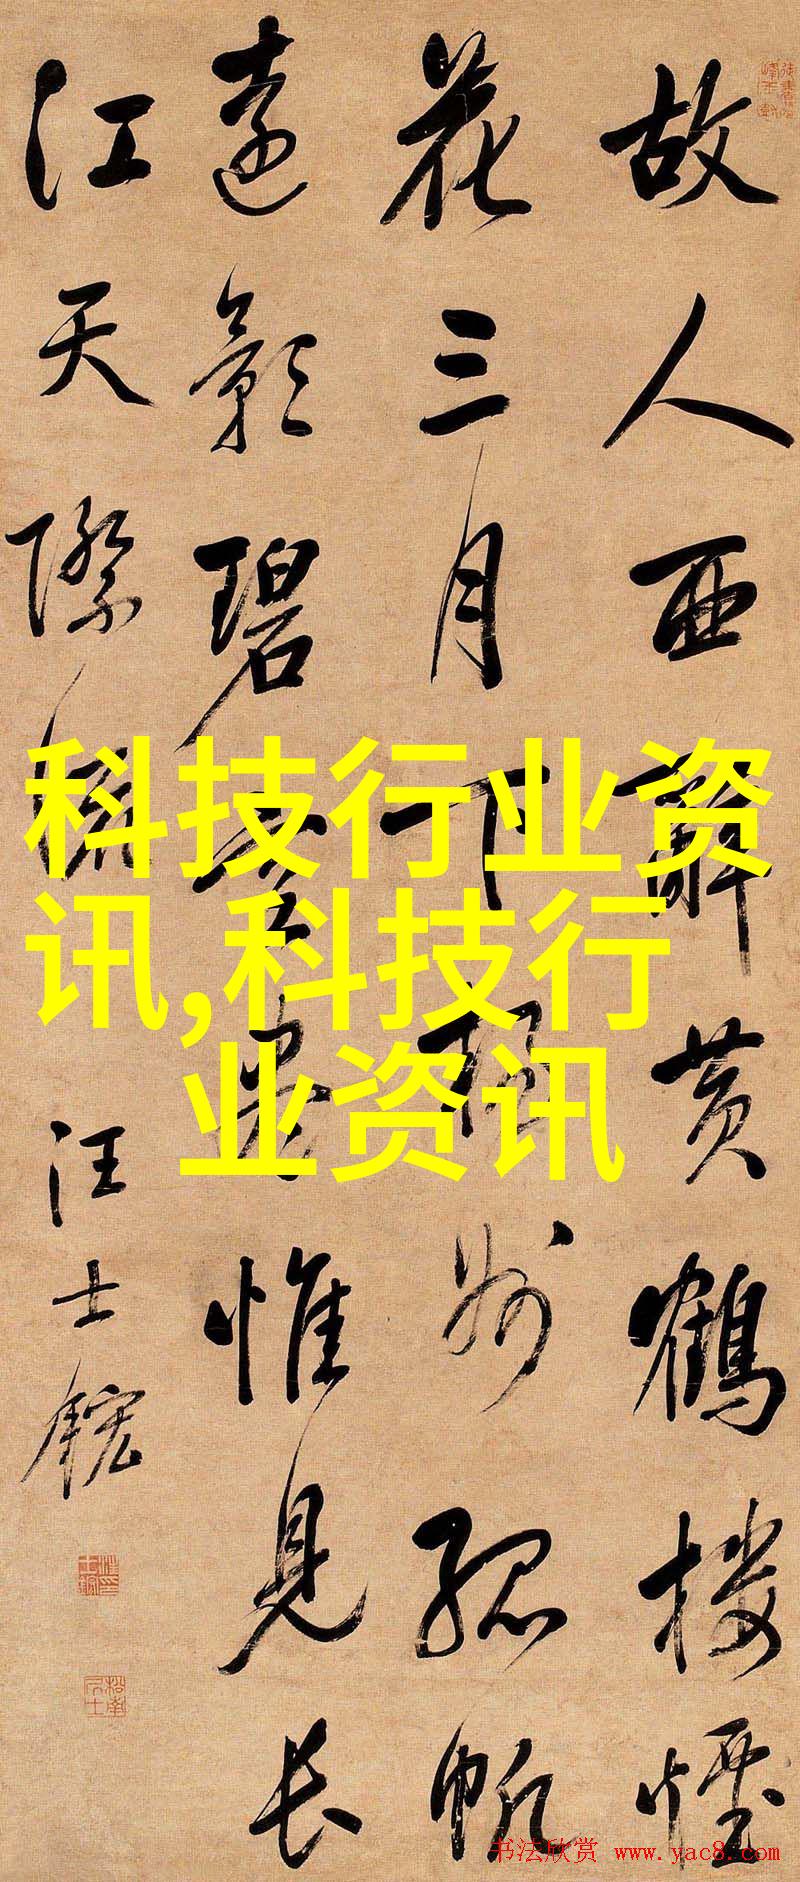 故人西辭黃鶴樓煙
花三月下揚州孤帆
遠影碧空盡惟見長
江天際流
汪士鋐
科技行业资
讯,科技行
业资讯
书法欣赏 www.yac8.com